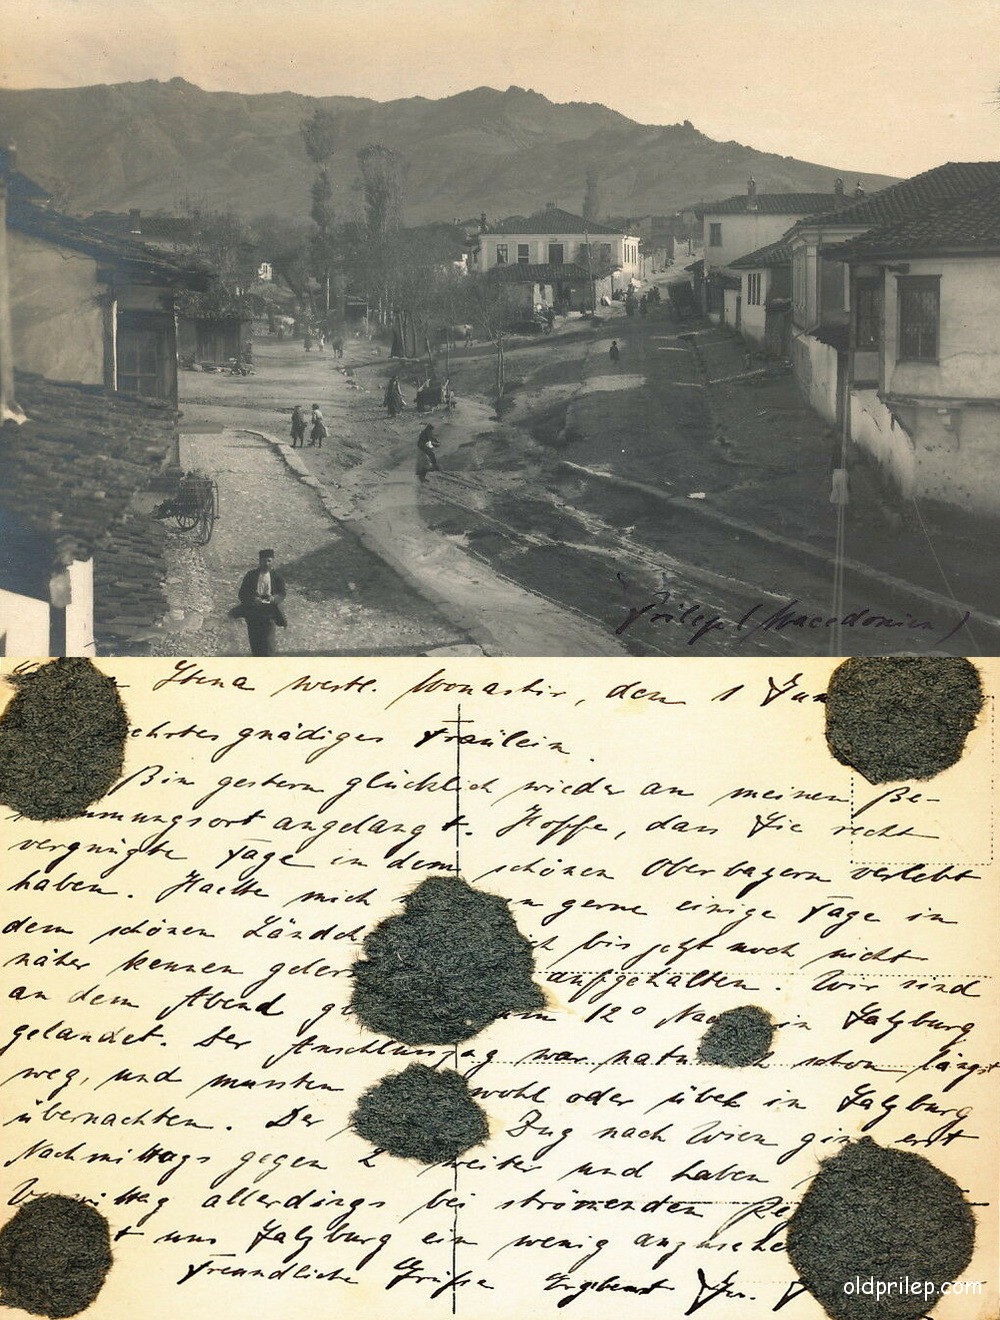 Prilep (Macedonien)
Izbna westl. Monastir, den 1 Jun
ehrtes gnädiges Fräulein
Bin gestern glücklich wieder an meinen Be-
immungsort angelangt. Hoffe, dass Sie recht
vergnügte Tage in dem schönen Oberbayern verlebt
haben. Haette mich gerne einige Tage in
dem schönen Länd ich bis jetzt noch nicht
näher kennen geler aufgehalten. Wir sind
an dem Abend um 12° Na in Salzburg
gelandet. Der Anschlusszug war natü h schon längst
weg, und mussten wohl oder übel in Salzburg
übernachten. Der Zug nach Wien ging erst
Nachmittags gegen 2 weiter und haben
Vormittag allerdings bei strömenden Re
t uns Salzburg ein wenig anzusehe
Freundliche Grüsse Ergebenst
oldprilep.com